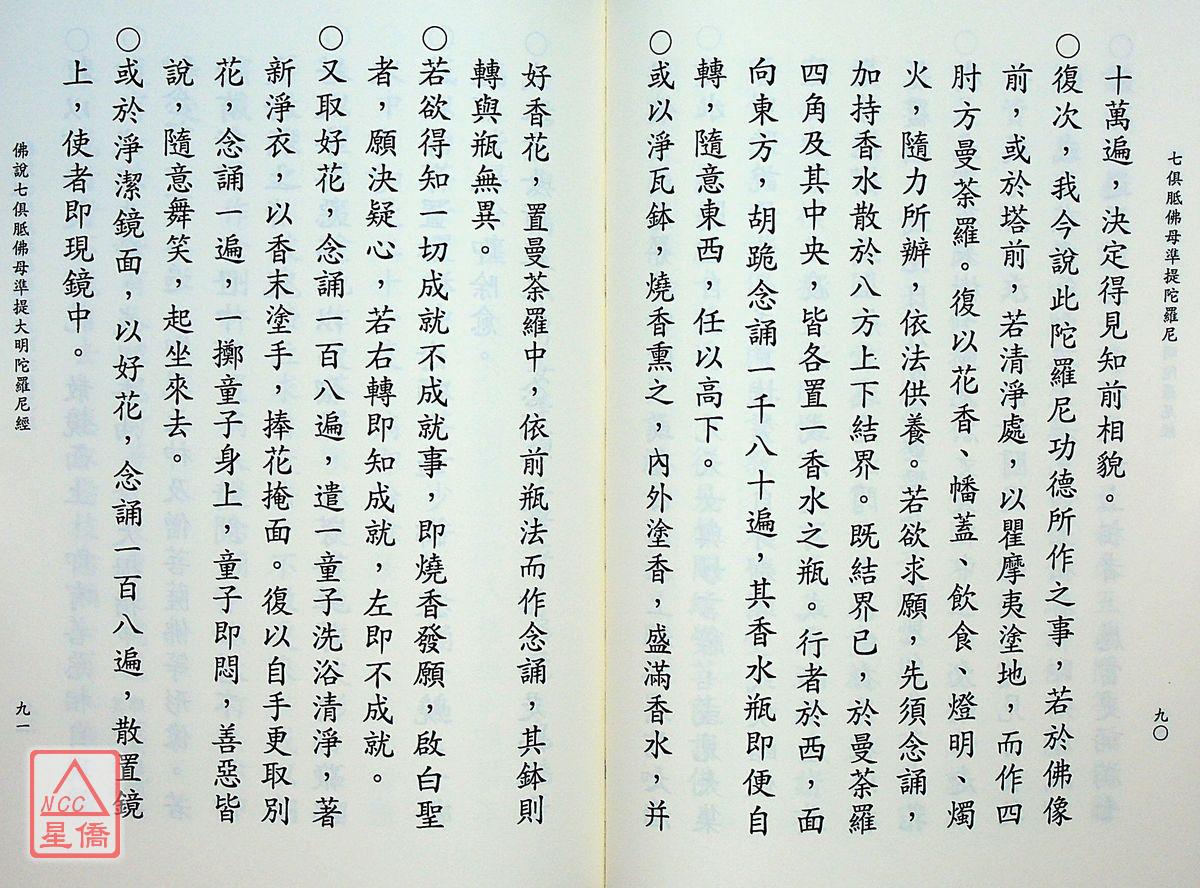 七俱胝佛母準提陀羅尼
九〇
十萬遍，決定得見知前相貌。
〇復次，我今說此陀羅尼功德所作之事，若於佛像
前，或於塔前，若清淨處，以瞿摩夷塗地，而作四
肘方曼荼羅。復以花香、幡蓋、飲食、燈明、燭
火，隨力所辦，依法供養。若欲求願，先須念誦，
加持香水散於八方上下結界。既結界已，於曼荼羅
四角及其中央，皆各置一香水之瓶。行者於西，面
向東方，胡跪念誦一千八十遍，其香水瓶即便自
轉，隨意東西，任以高下。
〇或以淨瓦鉢，燒香熏之，內外塗香，盛滿香水，并
好香花，置曼荼羅中，依前瓶法而作念誦，其鉢則
轉與瓶無異。
〇若欲得知一切成就不成就事，即燒香發願，啟白聖
者，願決疑心，若右轉即知成就，左即不成就。
〇又取好花，念誦百八遍，遣一童子洗浴清淨，著
新淨衣，以香末塗手，捧花掩面。復以自手更取別
花，念誦一遍，一擲童子身上，童子即悶，善惡皆
說，隨意舞笑，起坐來去。
〇或於淨潔鏡面，以好花，念誦一百八遍，散置鏡
上，使者即現鏡中。
佛說七俱胝佛母準提大明陀羅尼經
九一
NCC
星僑